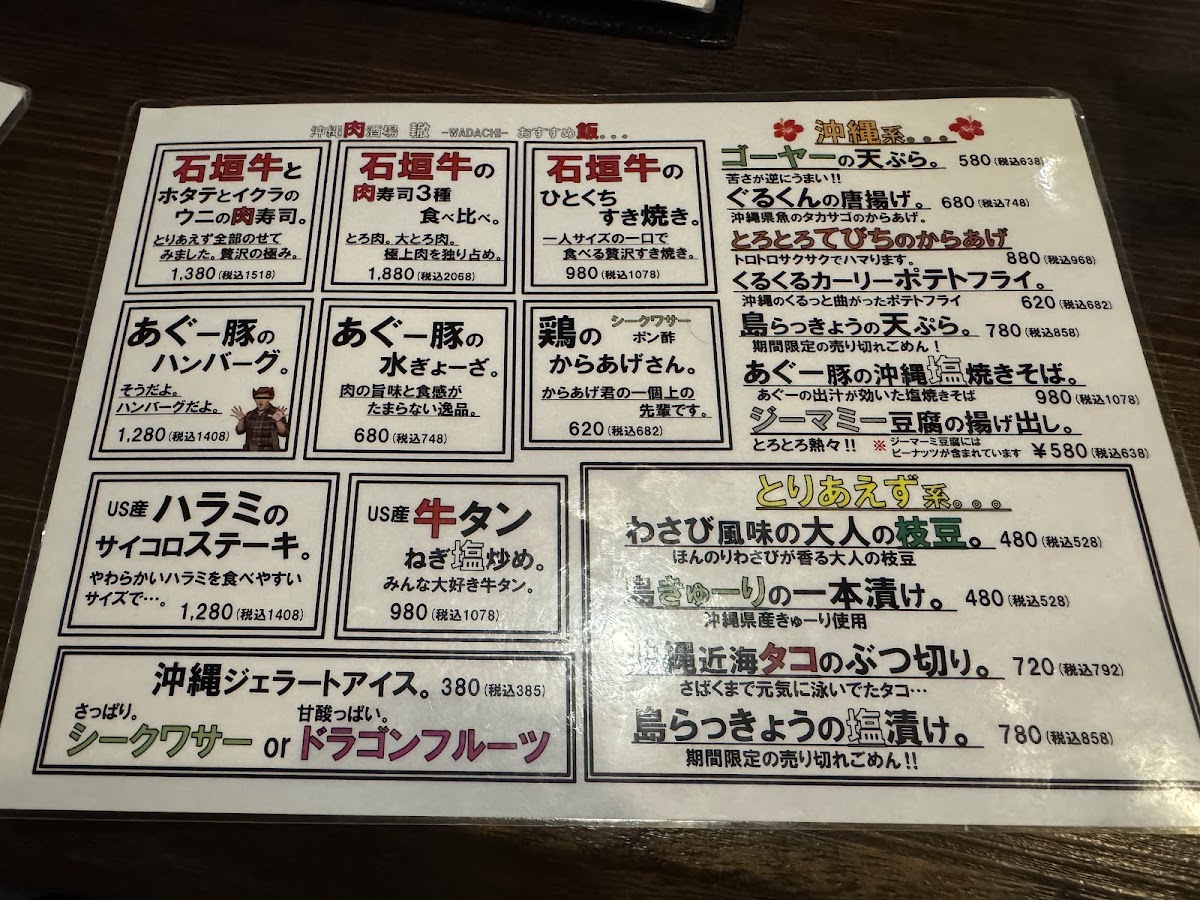 沖縄肉酒場 轍 -WADACHI- おすすめ飯...
石垣牛と
ホタテとイクラの
ウニの肉寿司。
とりあえず全部のせて
みました。贅沢の極み。
1,380(税込1518)
石垣牛の
肉寿司3種
食べ比べ。
とろ肉。大とろ肉。
極上肉を独り占め。
1,880(税込2068)
石垣牛の
ひとくち
すき焼き。
一人サイズの一口で
食べる贅沢すき焼き。
980(税込1078)
あぐー豚の
ハンバーグ。
そうだよ。
ハンバーグだよ。
1,280(税込1408)
あぐー豚の
水ぎょーざ。
肉の旨味と食感が
たまらない逸品。
680(税込748)
鶏の シークワサー
ポン酢
からあげさん。
からあげ君の一個上の
先輩です。
620(税込682)
US産 ハラミの
サイコロステーキ。
やわらかいハラミを食べやすい
サイズで…。
1,280(税込1408)
US産 牛タン
ねぎ塩炒め。
みんな大好き牛タン。
980(税込1078)
沖縄ジェラートアイス。380(税込385)
さっぱり。 甘酸っぱい。
シークワサー or ドラゴンフルーツ
沖縄系...
ゴーヤーの天ぷら。 580(税込638)
苦さが逆にうまい!!
ぐるくんの唐揚げ。 680(税込748)
沖縄県魚のタカサゴのからあげ。
とろとろてびちのからあげ
トロトロサクサクでハマります。 880(税込968)
くるくるカーリーポテトフライ。
沖縄のくるっと曲がったポテトフライ 620(税込682)
島らっきょうの天ぷら。 780(税込858)
期間限定の売り切れごめん!
あぐー豚の沖縄塩焼きそば。
あぐーの出汁が効いた塩焼きそば 980(税込1078)
ジーマミー豆腐の揚げ出し。
とろとろ熱々!! ※ジーマーミ豆腐には
ピーナッツが含まれています ¥580(税込638)
とりあえず系。。。
わさび風味の大人の枝豆。 480(税込528)
ほんのりわさびが香る大人の枝豆
島きゅーりの一本漬け。 480(税込528)
沖縄県産きゅーり使用
沖縄近海タコのぶつ切り。 720(税込792)
さばくまで元気に泳いでたタコ…
島らっきょうの塩漬け。 780(税込858)
期間限定の売り切れごめん!!